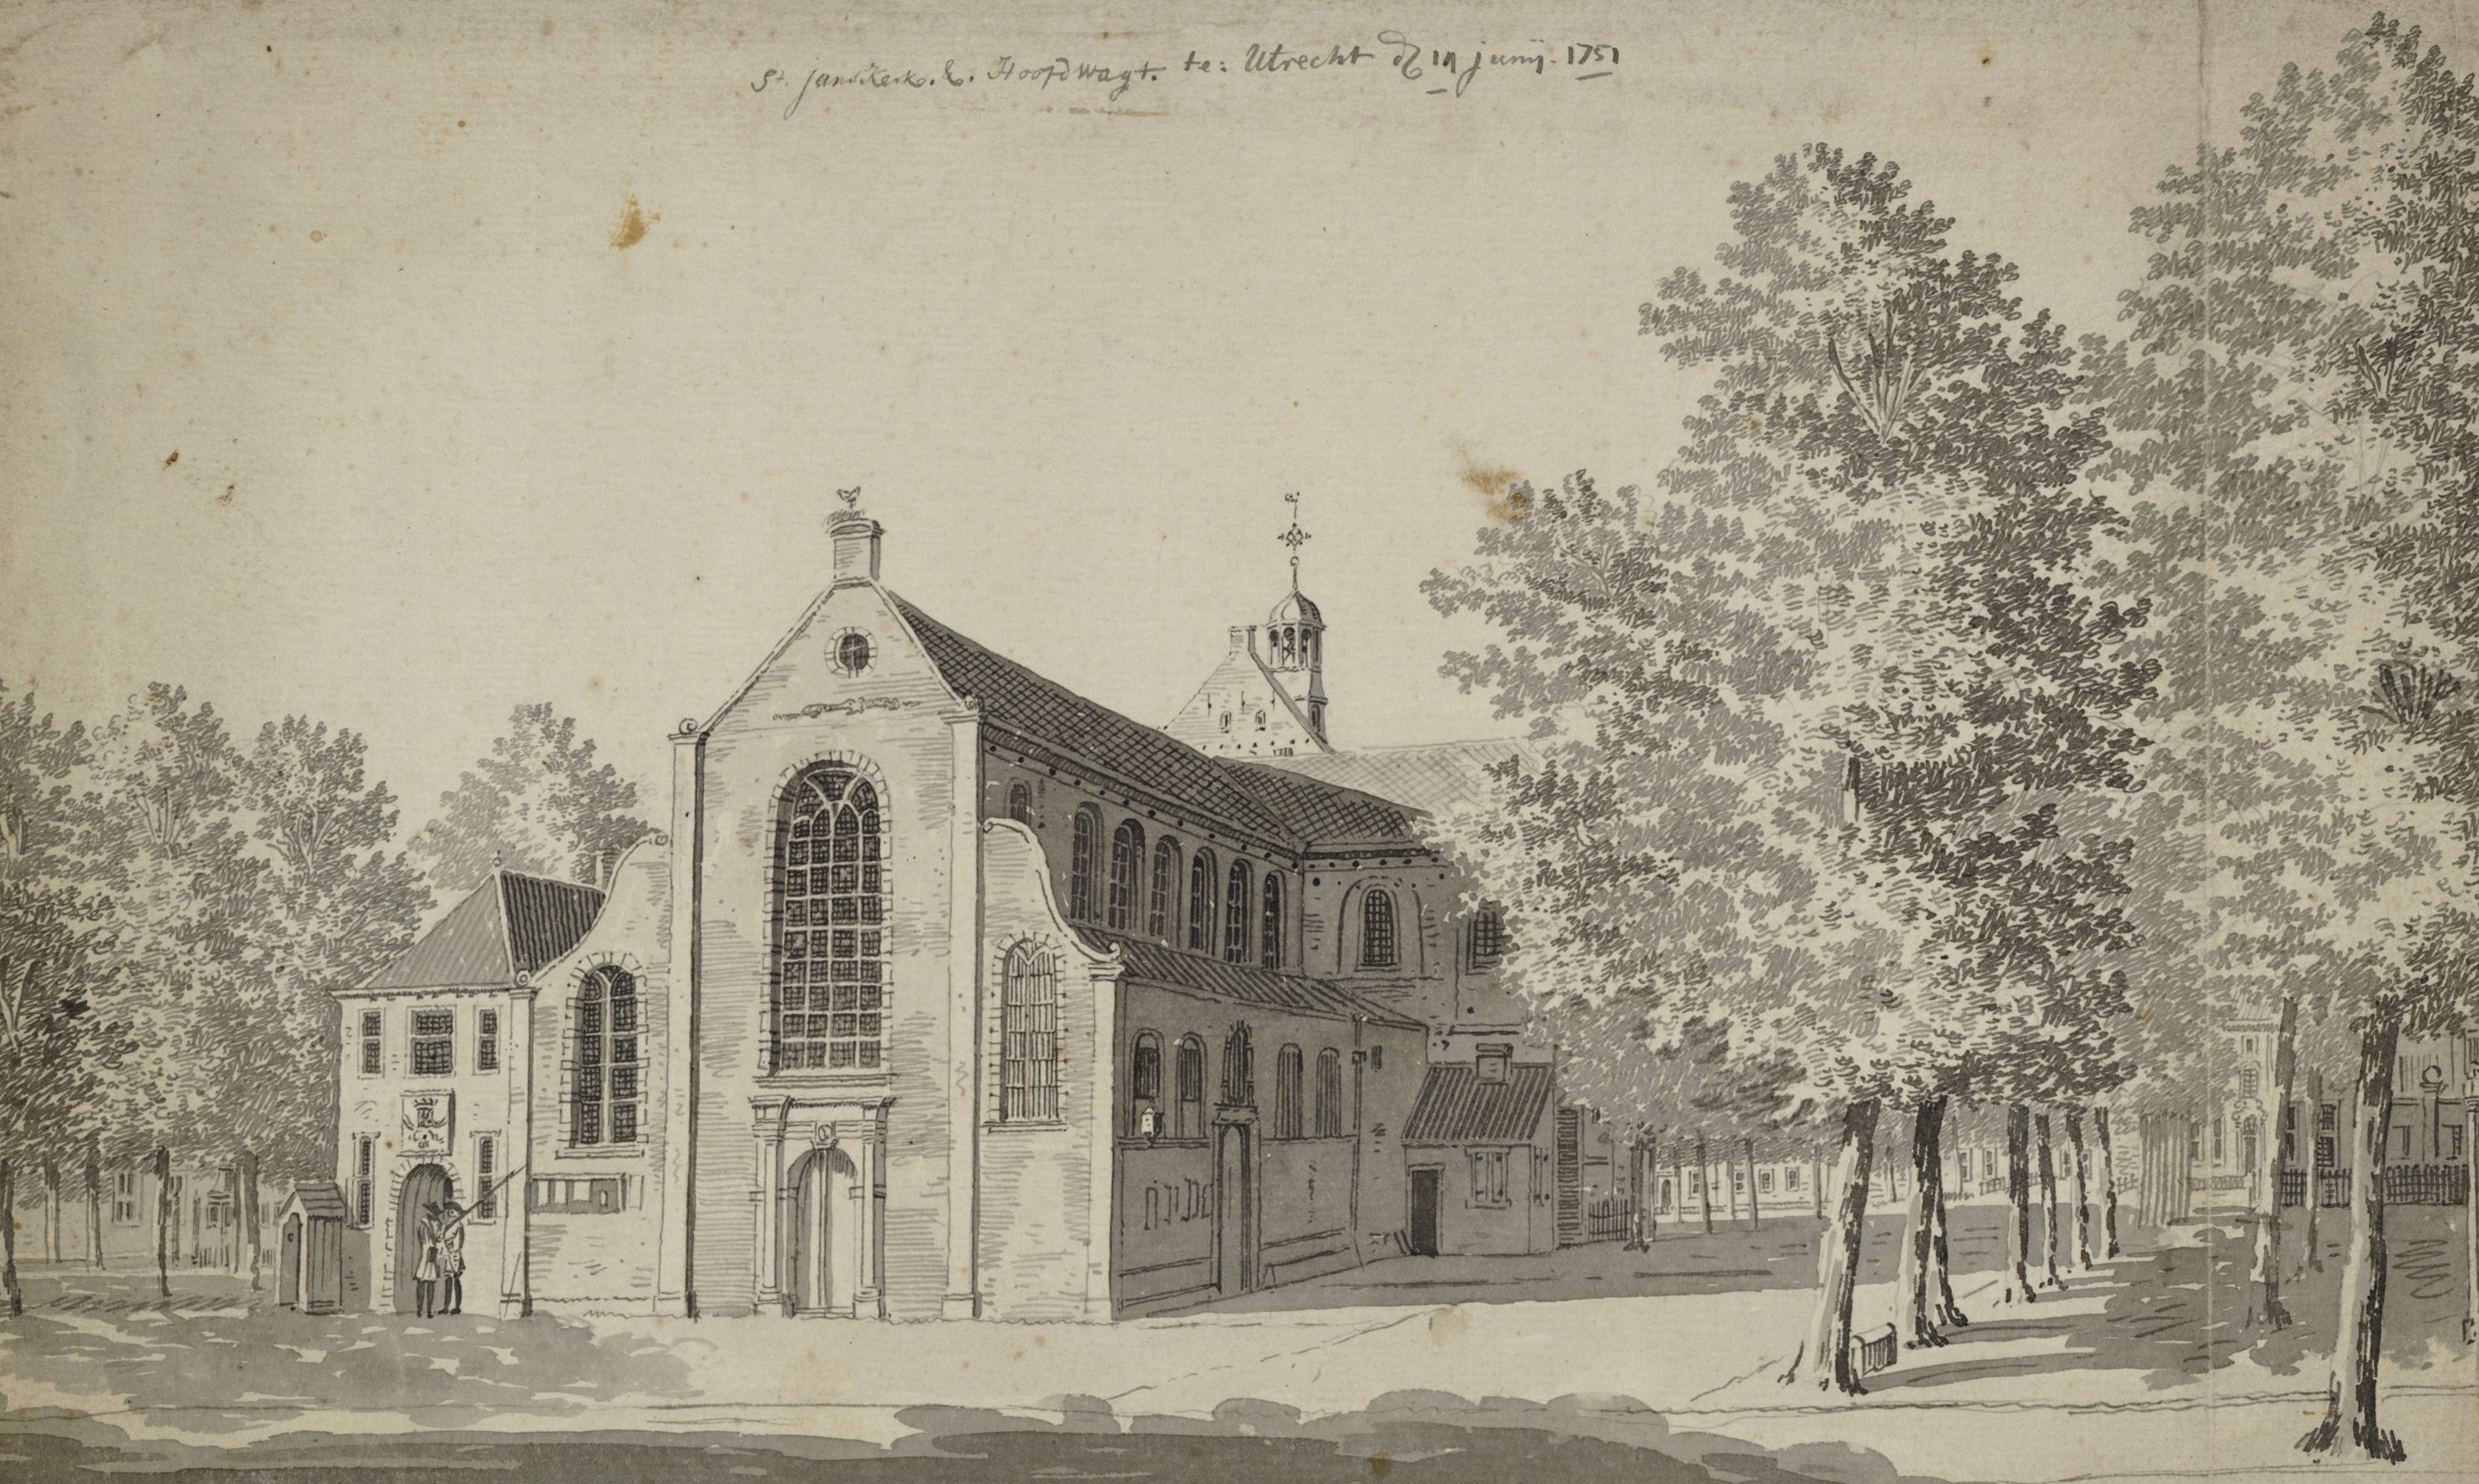 St. Janskerk. &. Hoofdwagt. te: Utrecht junij. 1751